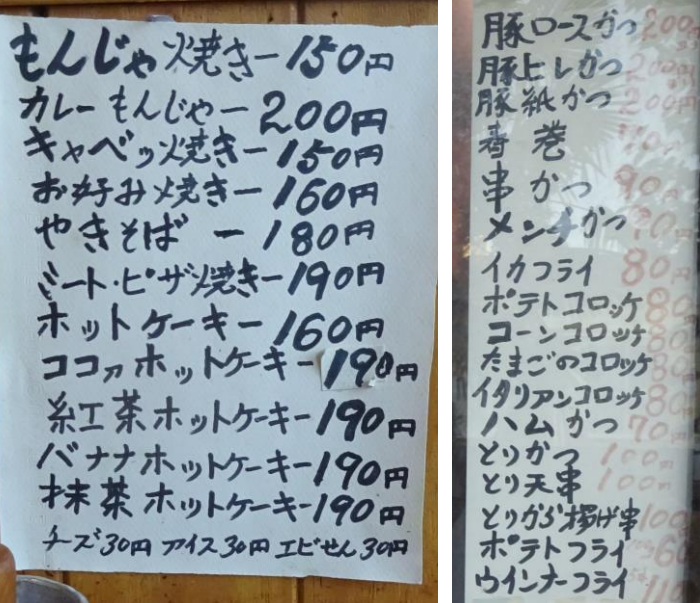 もんじゃ焼きー150円
カレーもんじゃー200円
キャベツ焼きー150円
お好み焼きー160円
やきそばー180円
ミート・ピザ焼きー190円
ホットケーキー160円
ココアホットケーキー190円
紅茶ホットケーキー190円
バナナホットケーキー190円
抹茶ホットケーキー190円
チーズ30円 アイス30円 エビせん30円
豚ロースかつ 200円
豚ヒレかつ 200円
豚紙かつ 200円
春巻
串かつ 90円
メンチかつ
イカフライ 80円
ポテトコロッケ 80
コーンコロッケ 80
たまごのコロッケ 80
イタリアンコロッケ 80
ハムかつ 70円
とりかつ 100円
とり天串 100円
とりから揚げ串 100
ポテトフライ 60
ウインナーフライ 110